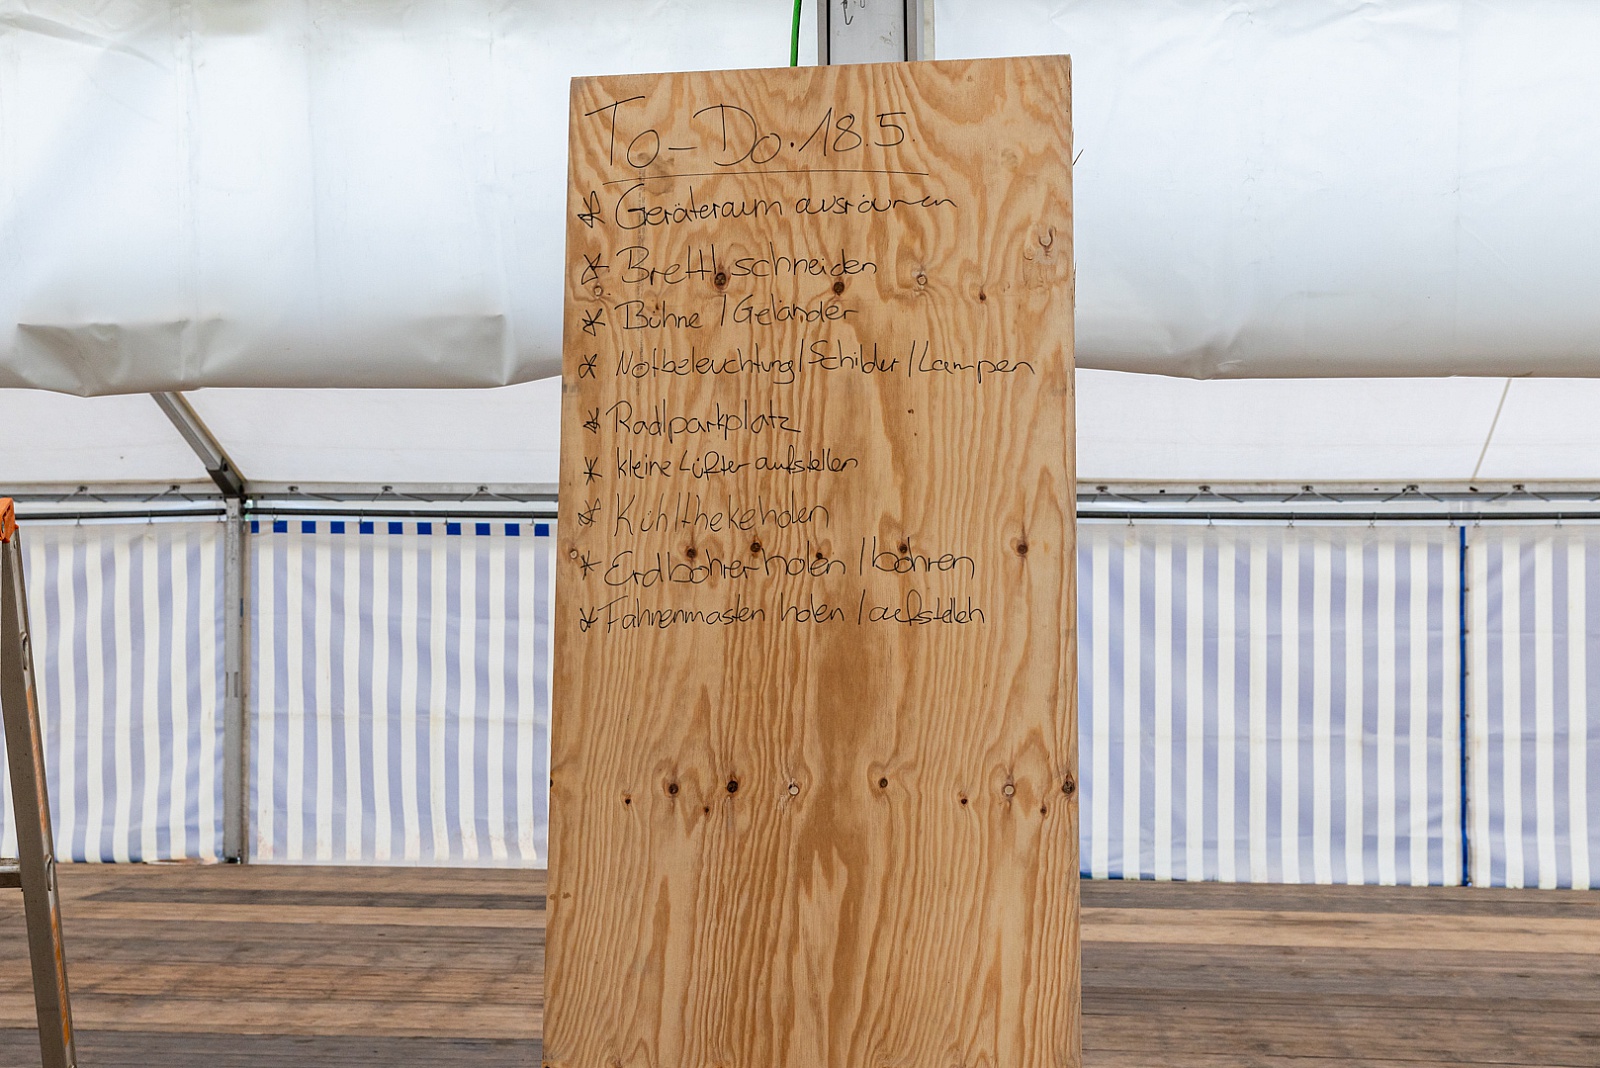 To-Do.18.5.
* Geräteraum ausräumen
* Brettl schneiden
* Bühne / Geländer
* Notbeleuchtung / Schilder / Lampen
* Radlparkplatz
* kleine Lüfter aufstellen
* Kühltheke holen
* Erdbohrer holen / bohren
* Fahnenmasten holen / aufstellen